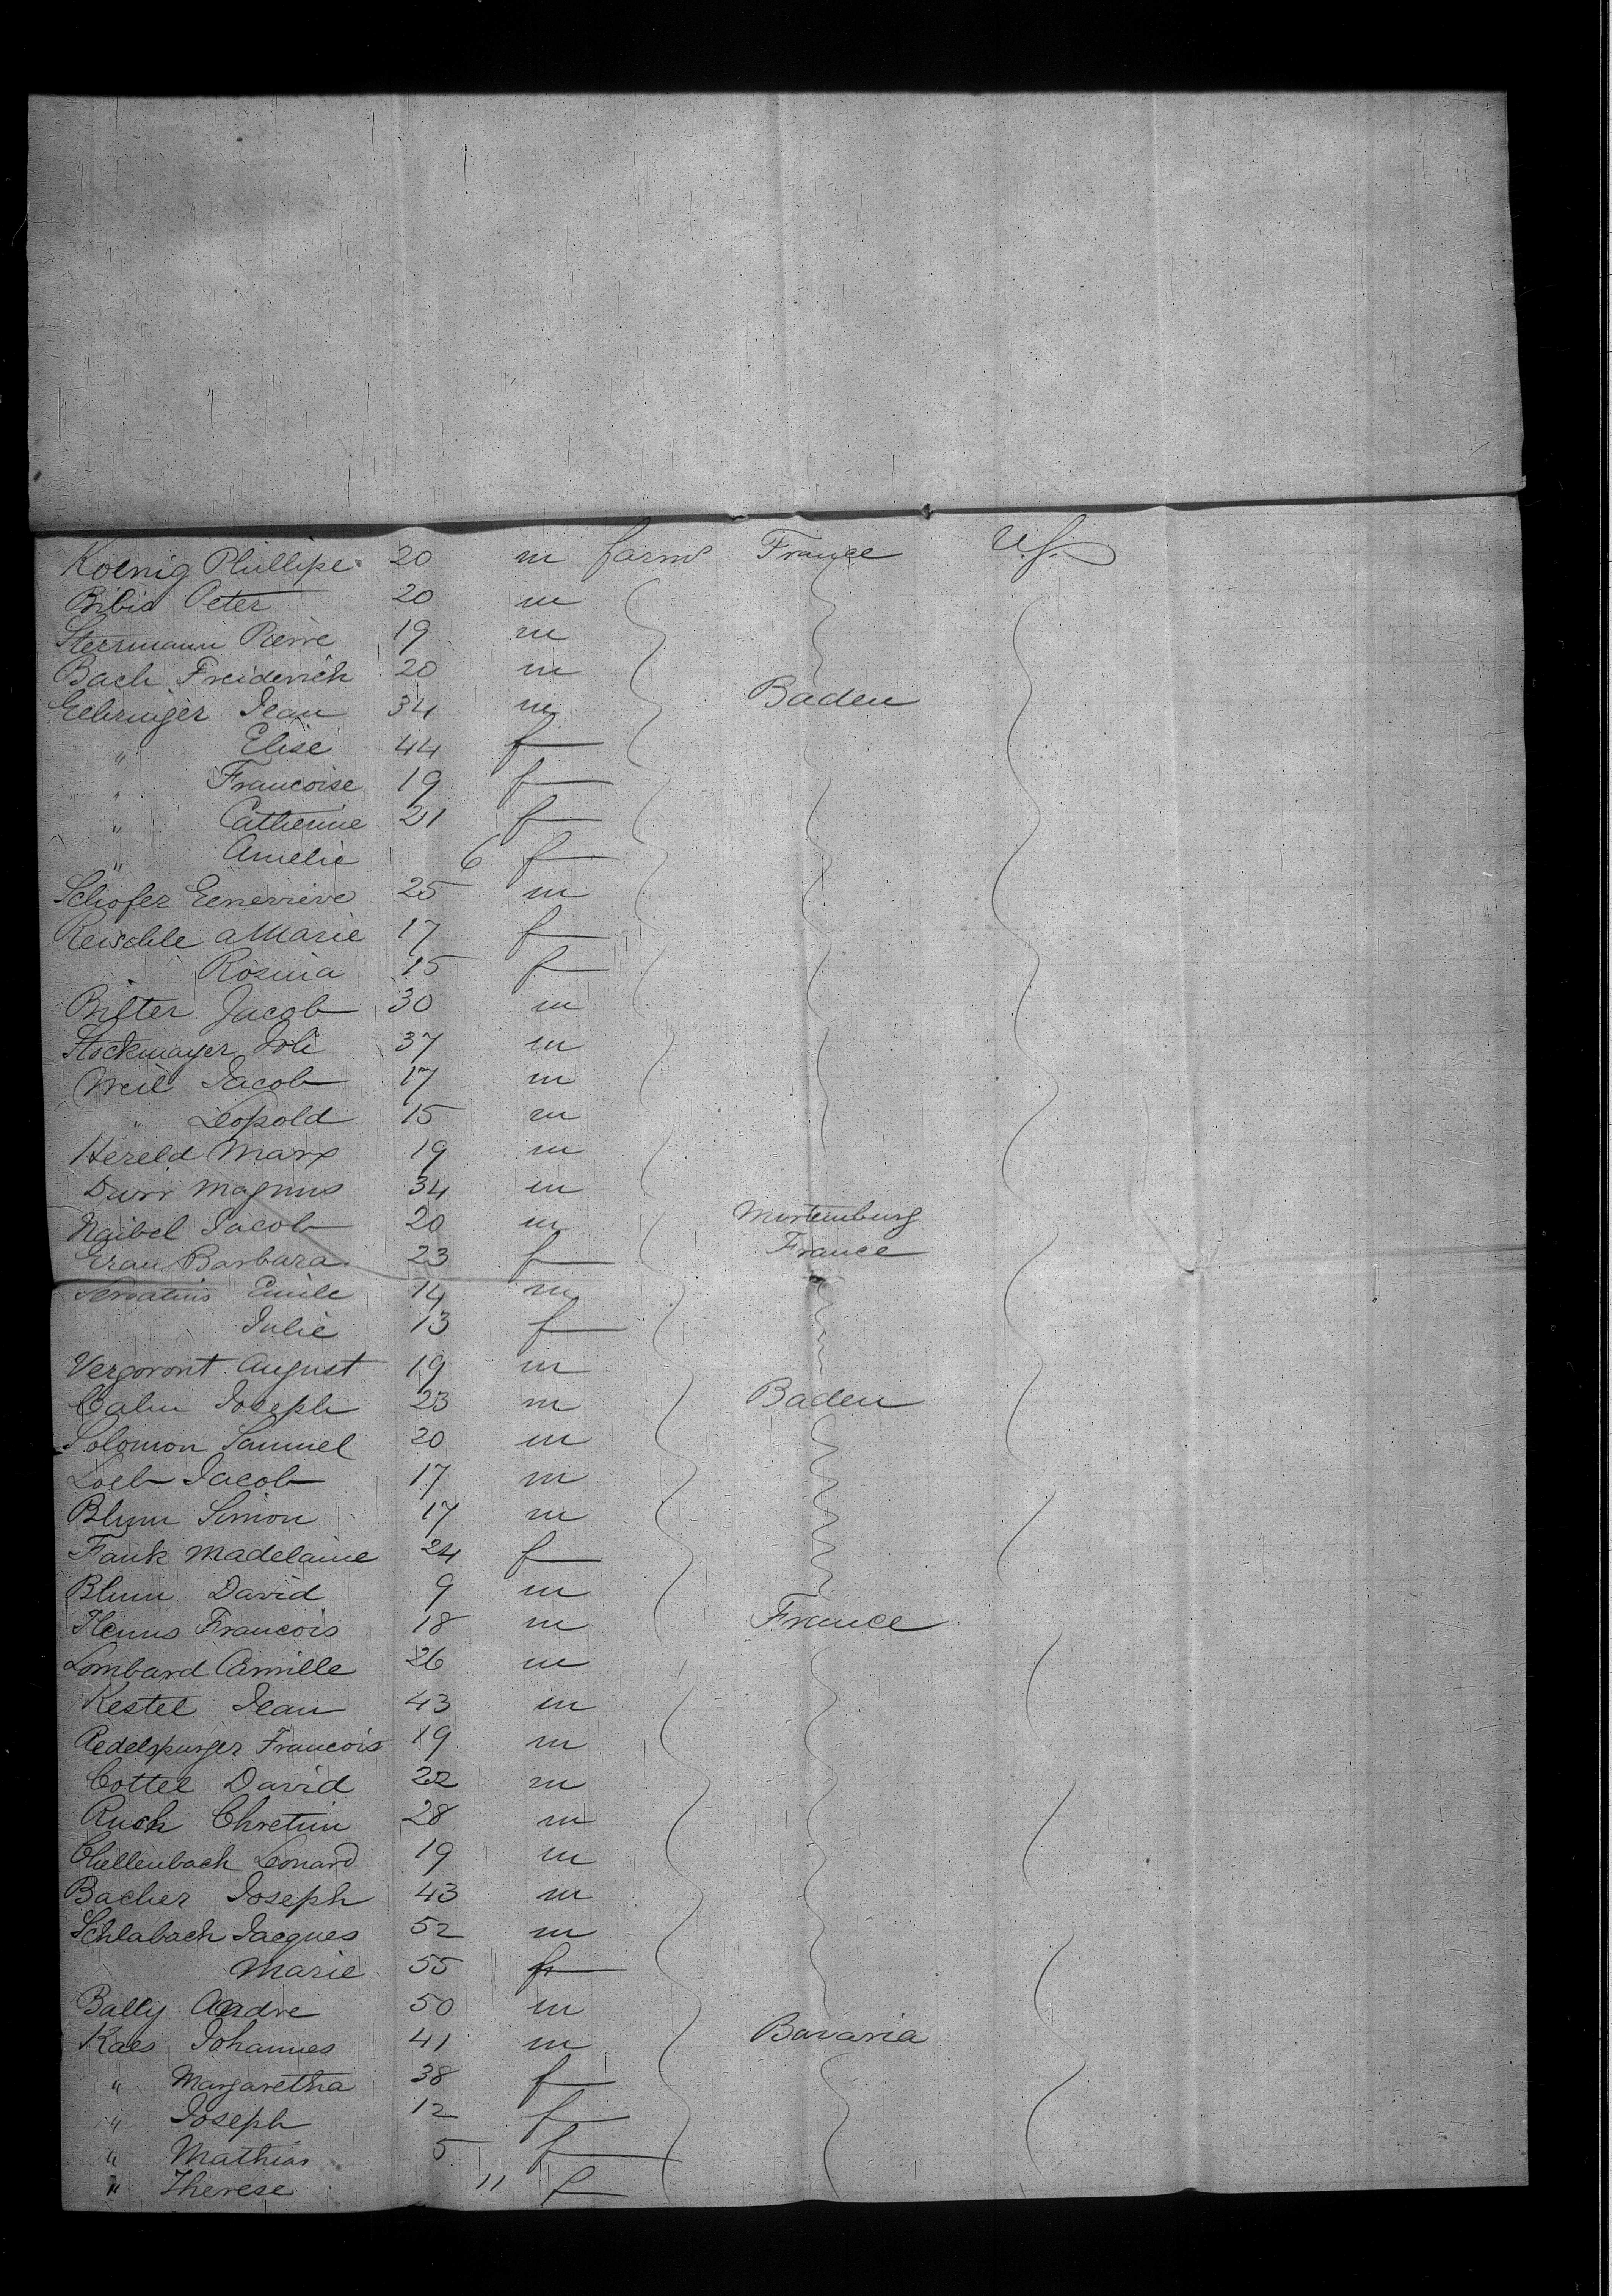 Koenig Phillipe 20 m farms France U.S.
Bibis Peter 20 m
Sterrmann Pierre 19 m
Bach Freiderich 20 m
Gehringer Jean 34 m Baden
" Elise 44 f
" Francoise 19 f
" Catherine 21 f
" Amelie 6 f
Schofer Genevieve 25 m
Reischle a Marie 17 f
Rosina 15 f
Bilter Jacob 30 m
Stockmayer Joh 37 m
Weil Jacob 17 m
" Leopold 15 m
Hereld Marx 19 m
Durr Magnus 34 m
Naibel Jacob 20 m Wurtemburg
Grau Barbara 23 f France
Servatius Emile 14 m
Julie 13 f
Vergoront August 19 m
Cahn Joseph 23 m Baden
Solomon Samuel 20 m
Loeb Jacob 17 m
Blum Simon 17 m
Fank Madelaine 24 f
Blum David 9 m
Henus Francois 18 m France
Lombard Camille 26 m
Kestel Jean 43 m
Redelspurger Francois 19 m
Cottel David 22 m
Ruch Chretien 28 m
Chellenbach Leonard 19 m
Bacher Joseph 43 m
Schlabach Jacques 52 m
Marie 55 f
Bally Andre 50 m
Kaes Johannes 41 m Bavaria
" Margaretha 38 f
" Joseph 12 f
" Mathias 5 f
" Therese 11 f